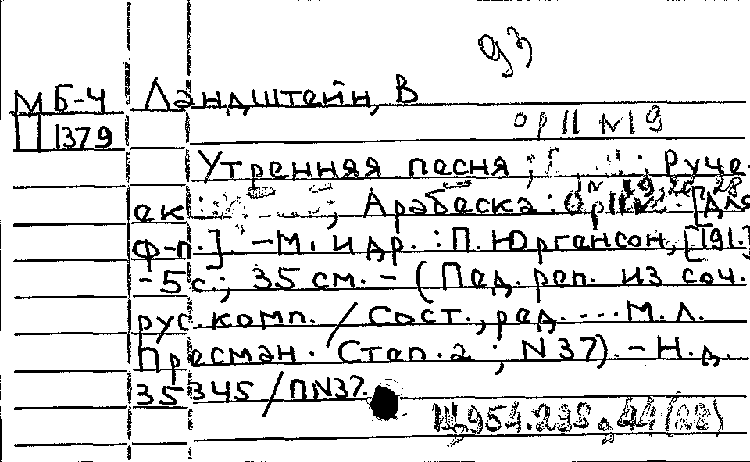 93
М Б-4 Ландштейн, В
П 1379 ор 11 №19
Утренняя песня ; ; Руче-
ек : ; Арабеска : Ор 11 № 19, 20, 28 . [Для
ф-п.]. -М. и др. : П. Юргенсон, [191.]
-5с ; 35 см. - (Пед. реп. из соч.
рус. комп. / Сост., ред. ... М. Л.
Пресман. Степ. 2 ; N37). - Н. д.
35345/ПN37.
954.238 44(28)